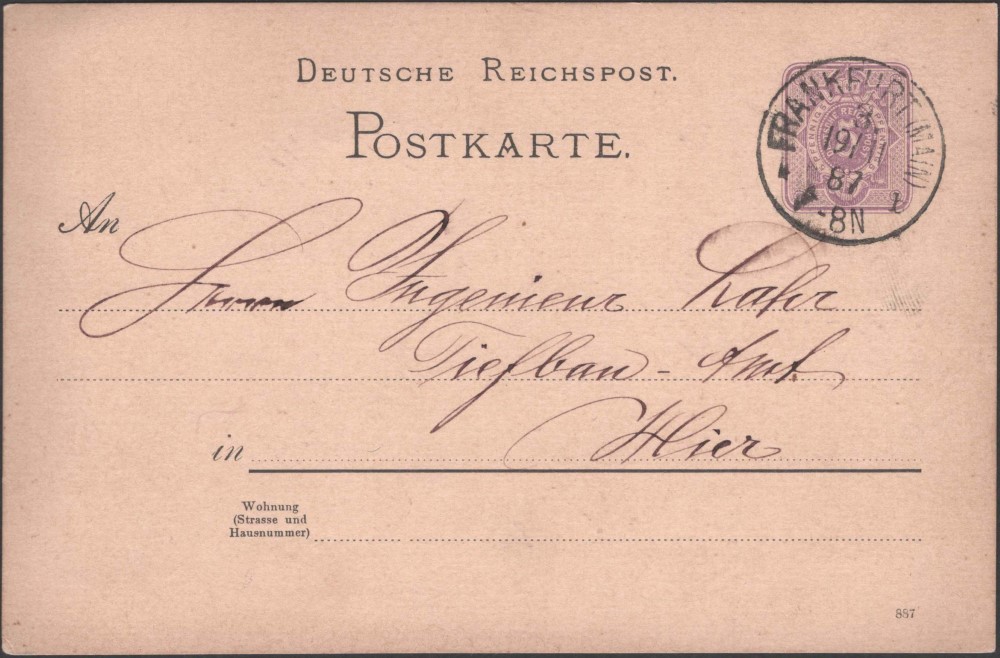 DEUTSCHE REICHSPOST.
POSTKARTE.
FRANKFURT (MAIN)
19
87
-8N
An
Herrn Ingenieur Lahr
Tiefbau-Amt.
in Hier
Wohnung
(Strasse und
Hausnummer)
887